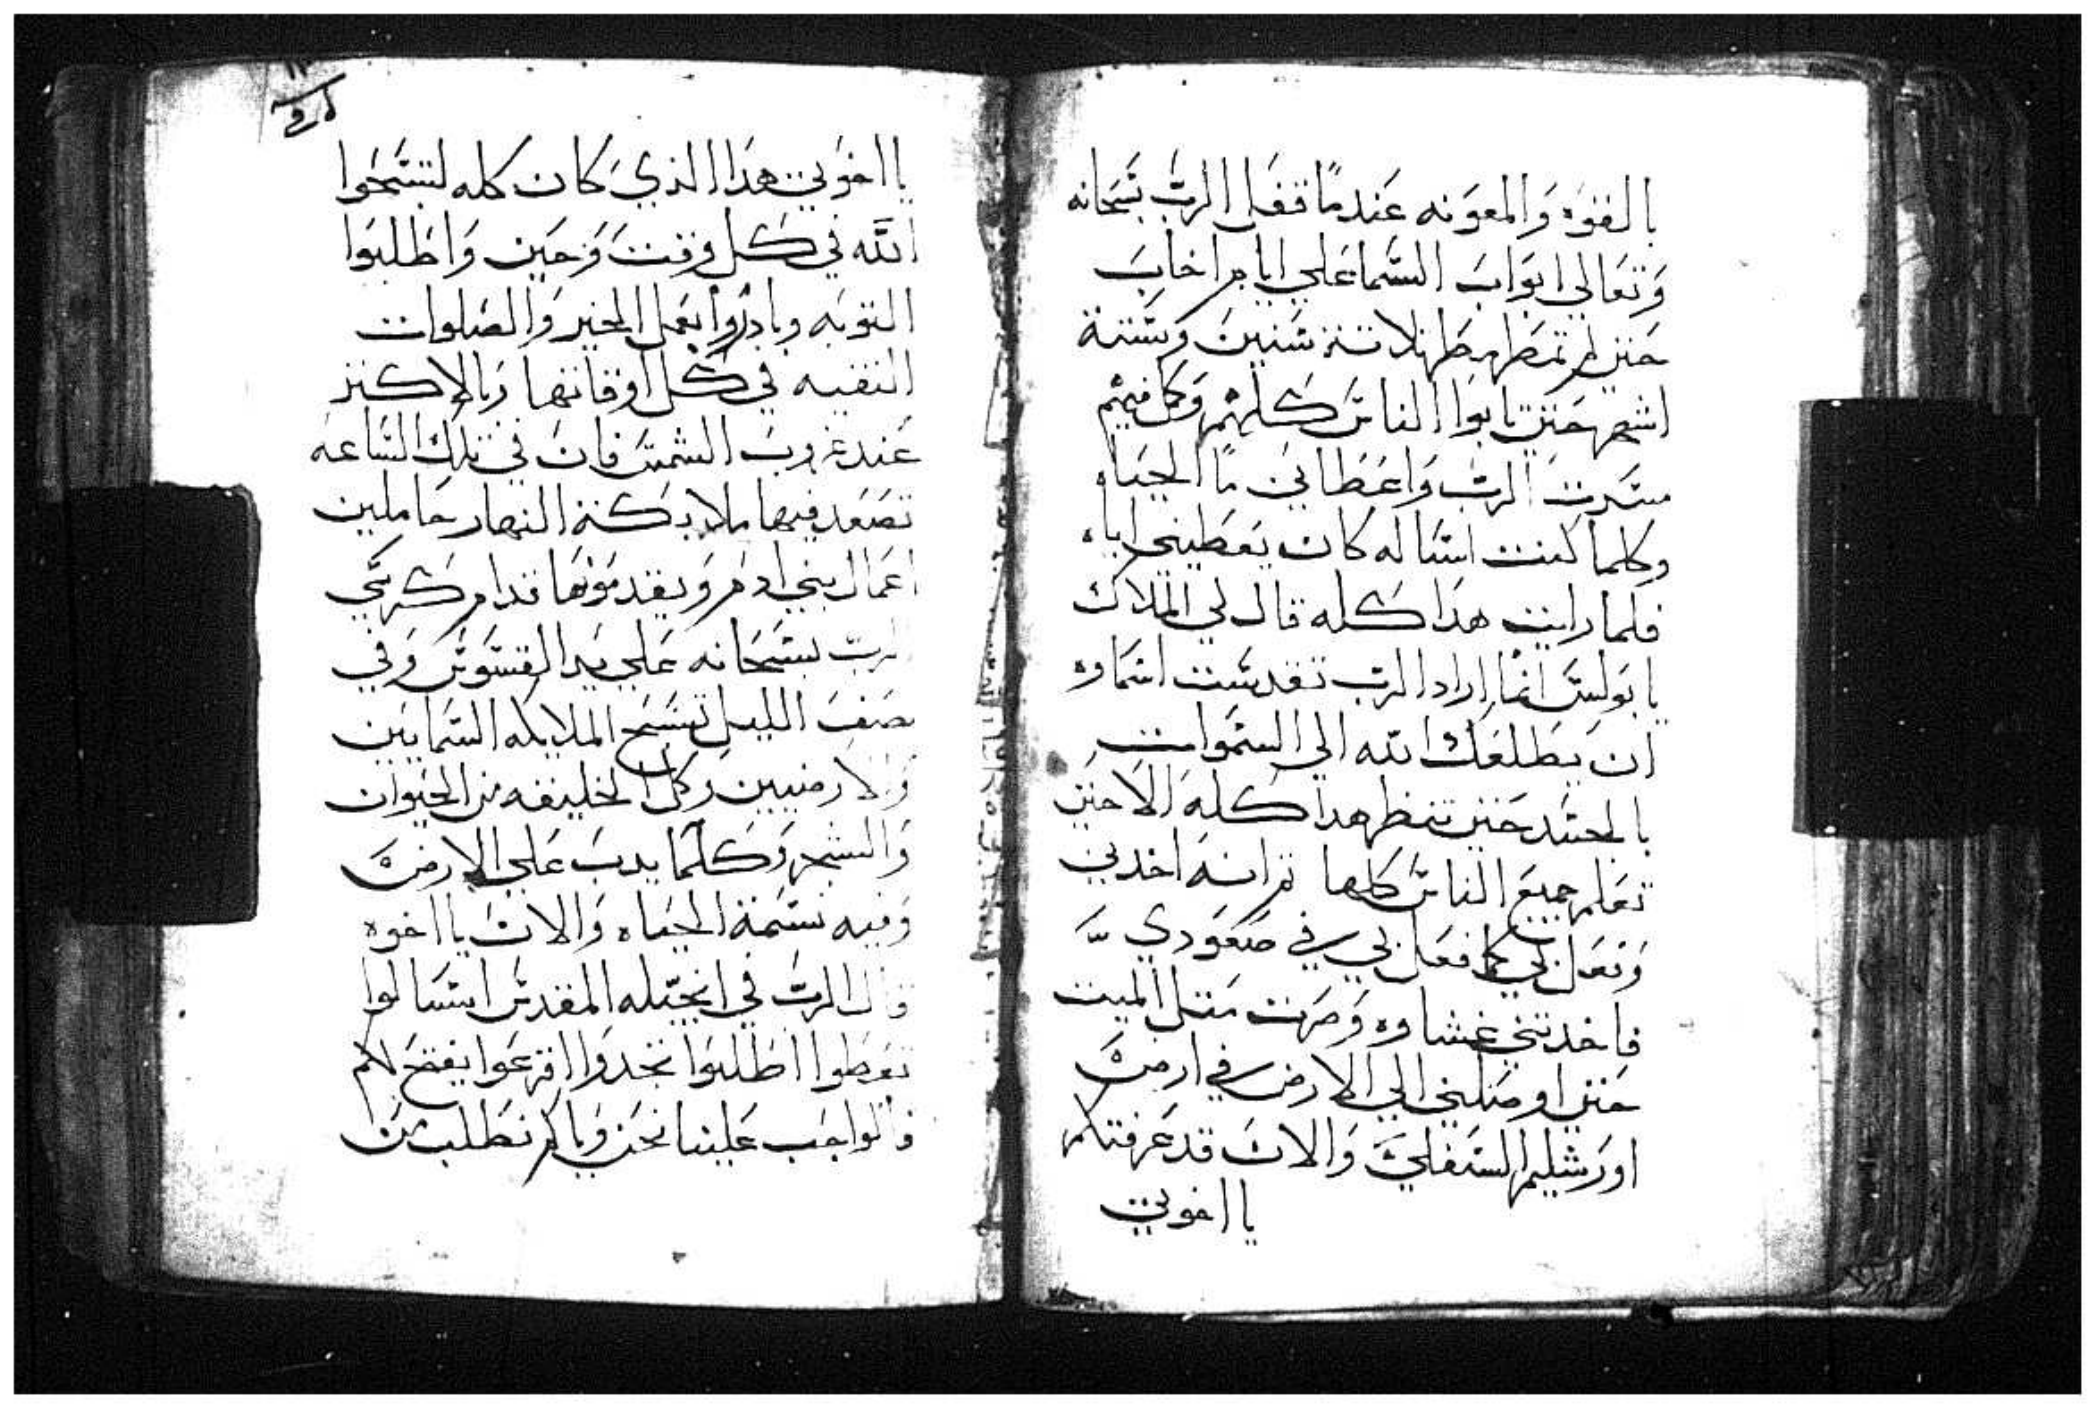 بالقوه والمعونه عندما قفل الرب سبحانه
وتعالي ابواب السما علي ايام اخاب
حتي لم تمطر مطر ثلاثة سنين وستة
اشهر حتي تابوا الناس كلهم وكل فيهم
الرب واعطاني ما الحياه
وكلما كنت اساله كان يعطيني اياه
فلما رايت هذا كله قال لي الملاك
يا بولس انما اراد الرب تقدست اسماوه
ان يطلعك الله الي السموات
بالجسد حتي تنظر هذا كله الا حتي
تعلم جميع الناس كلها ثم انه اخدني
وفعل بي كما فعل بي في صعودي
فاخدتني غشاوه وصرت متل الميت
حتي اوصلني الي الارض في ارض
اورشليم السفلي والان قد عرفتكم
يا اخوتي
يا اخوتي هذا الذي كان كله لتسبحوا
الله في كل وقت وحين واطلبوا
التوبه وبادروا بعمل الخير والصلوات
النقيه في كل اوقاتها وبالاكتر
عند غروب الشمس فان في تلك الساعه
تصعد فيها ملايكة النهار حاملين
اعمال بني ادم ويقدموها قدام كرسي
الرب سبحانه علي يد القسوس وفي
نصف الليل تسبح الملايكه السمايين
والارضيين وكل الخليقه من الحيوان
والشجر وكلما يدب علي الارض
وفيه نسمة الحياه والان يا اخوه
قال الرب في انجيله المقدس اسالوا
تعطوا اطلبوا تجدوا اقرعوا يفتح لكم
فالواجب علينا نحن وياكم نطلب من